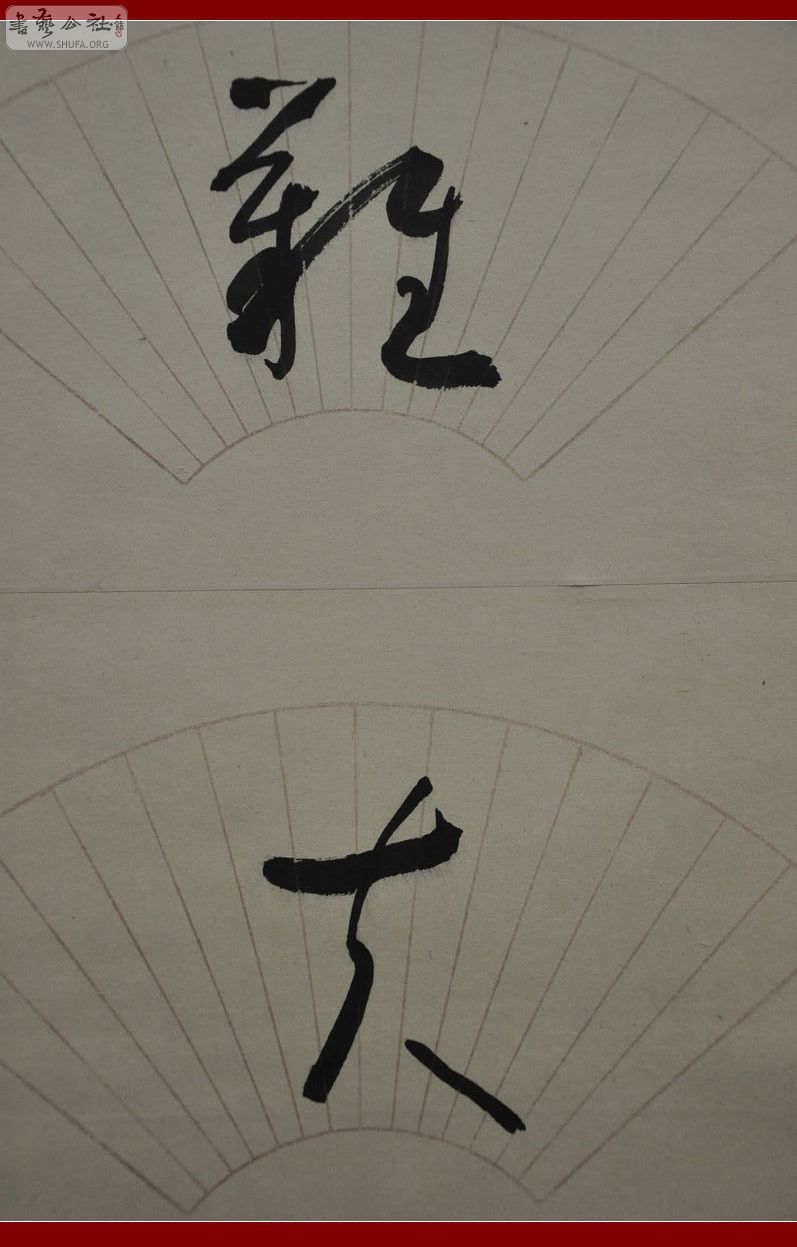 書藝公社
WWW.SHUFA.ORG
難
大